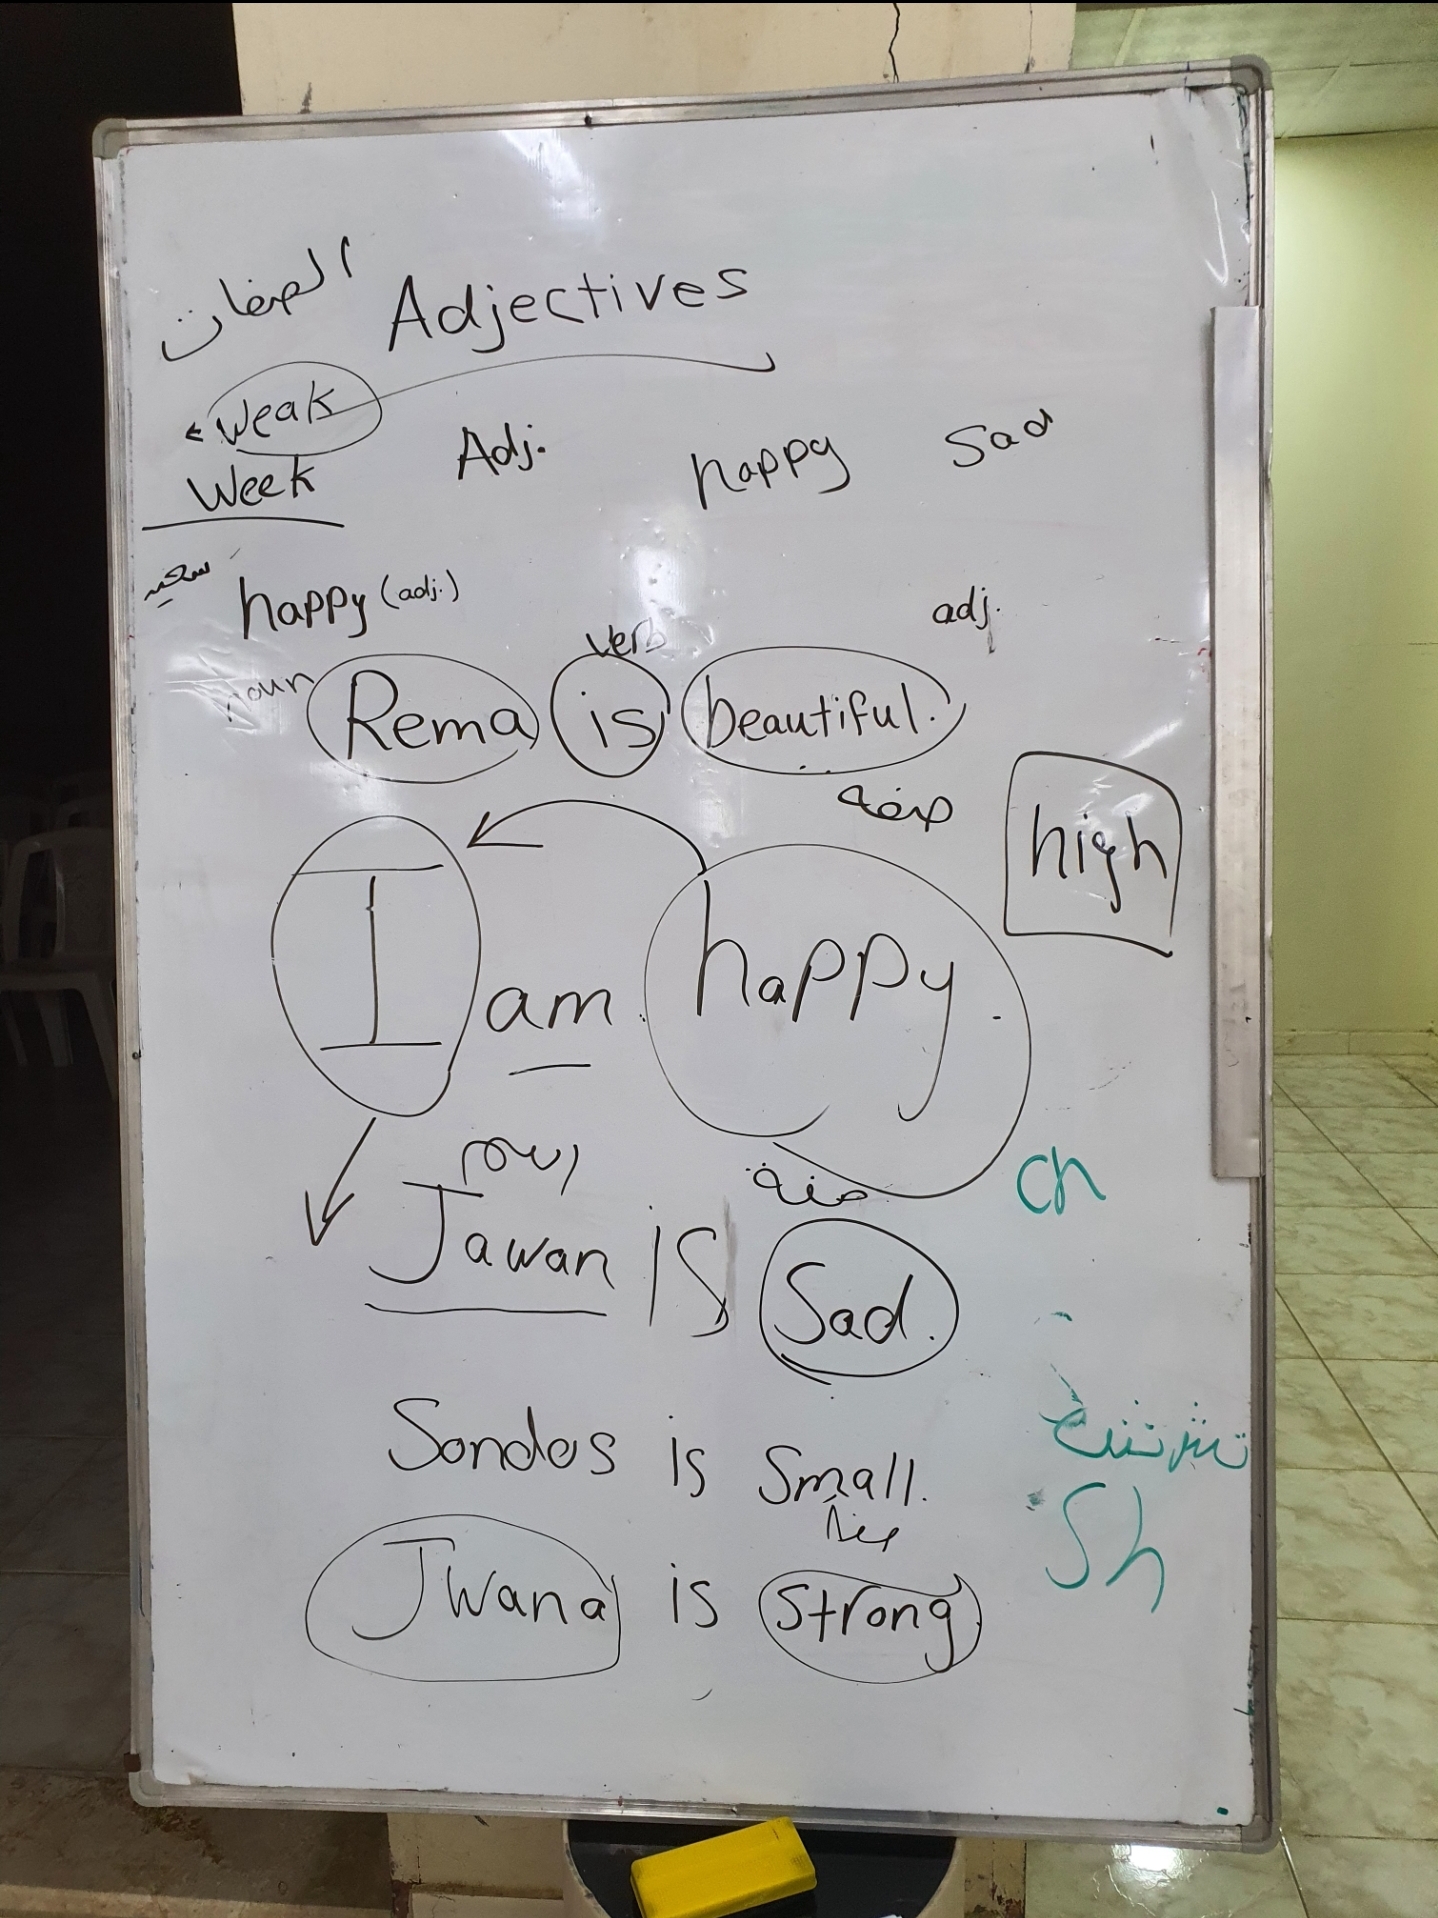 الصفات Adjectives
weak
Week Adj. happy Sad
happy (adj.) adj.
noun verb
Rema is beautiful.
صفة
high
I am happy.
اسم صفة
ch
Jawan is Sad.
Sondos is Small.
صفة
Sh
Jwana is strong